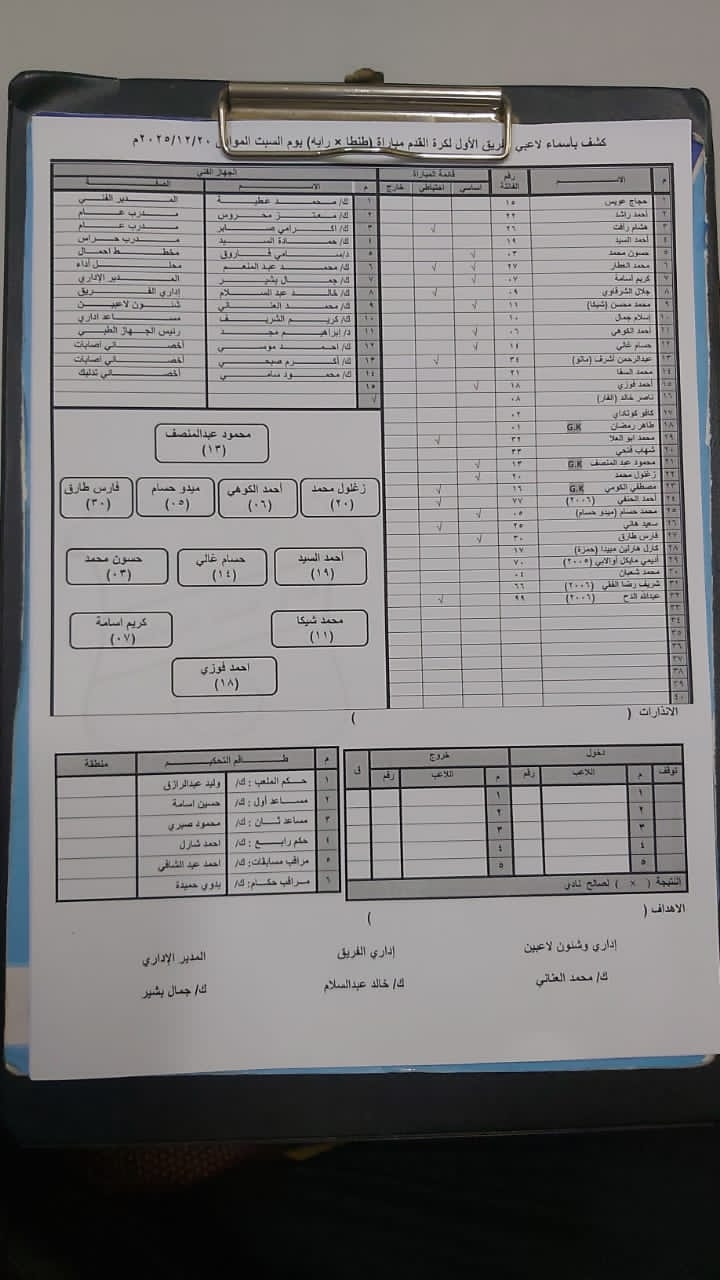 كشف بأسماء لاعبي الفريق الأول لكرة القدم مباراة (طنطا × رايه) يوم السبت الموافق ٢٠٢٥/١٢/٢٠م
م الاســـم رقم الفانلة قائمة المباراة أساسي احتياطي خارج
١ حجاج عويس ١٥
٢ أحمد راشد ٢٢
٣ هشام رأفت ٢٦ √
٤ أحمد السيد ١٩
٥ حسون محمد ٠٣ √
٦ محمد العطار ٢٧ √ √
٧ كريم أسامة ٠٧ √
٨ جلال الشرقاوي ٠٩ √
٩ محمد محسن (شيكا) ١١ √
١٠ إسلام جمال ١٠
١١ أحمد الكوهي ٠٦ √
١٢ حسام غالي ١٤ √
١٣ عبدالرحمن أشرف (مانو) ٣٤ √
١٤ محمد السقا ٢١
١٥ أحمد فوزي ١٨ √
١٦ ناصر خالد (الفار) ٠٨
١٧ كافو كوتاداي ٠٢
١٨ طاهر رمضان G.K ٠١
١٩ محمد ابو العلا ٣٢ √
٢٠ شهاب فتحي ٣٣
٢١ محمود عبد المنصف G.K ١٣ √
٢٢ زغلول محمد ٢٠ √
٢٣ مصطفي الكومي G.K ١٦ √
٢٤ أحمد الحنفي (٢٠٠٦) ٧٧ √
٢٥ محمد حسام (ميدو حسام) ٠٥ √
٢٦ سعيد هاني ٢٥ √
٢٧ فارس طارق ٣٠ √
٢٨ كارل هارلين مبيدا (حمزة) ١٧
٢٩ أديمي مايكل أوالابي (٢٠٠٥) ٧٠
٣٠ محمد شعبان ٠٤
٣١ شريف رضا الفقي (٢٠٠٦) ٦٦
٣٢ عبدالله الدح (٢٠٠٦) ٩٩ √
٣٣
٣٤
٣٥
٣٦
٣٧
٣٨
٣٩
٤٠
الجهاز الفني
م الاســـم الصفـــة
١ ك/ محمد عطية المدير الفني
٢ ك/ معتز محروس مدرب عام
٣ ك/ أكرامي صابر مدرب عام
٤ ك/ حمادة السيد مدرب حراس
٥ د/ سامي فاروق مخطط احمال
٦ ك/ محمد عبد المنعم محلل أداء
٧ ك/ جمال بشير المدير الإداري
٨ ك/ خالد عبد السلام إداري الفريق
٩ ك/ محمد العناني شئون لاعبين
١٠ ك/ كريم الشريف مساعد اداري
١١ د/ إبراهيم مجد رئيس الجهاز الطبي
١٢ ك/ احمد موسي أخصائي اصابات
١٣ ك/ أكرم صبحي أخصائي اصابات
١٤ ك/ محمود سامي أخصائي تدليك
١٥
√
محمود عبدالمنصف
(١٣)
زغلول محمد أحمد الكوهي ميدو حسام فارس طارق
(٢٠) (٠٦) (٠٥) (٣٠)
أحمد السيد حسام غالي حسون محمد
(١٩) (١٤) (٠٣)
محمد شيكا كريم اسامة
(١١) (٠٧)
احمد فوزي
(١٨)
الانذارات ( )
دخول خروج
توقف م اللاعب رقم م اللاعب رقم ق
١ ١
٢ ٢
٣ ٣
٤ ٤
٥ ٥
النتيجة ( × ) لصالح نادي
م طـــاقم التحكيـــم منطقة
١ حكم الملعب : ك/ وليد عبدالرازق
٢ مساعد أول : ك/ حسين اسامة
٣ مساعد ثان : ك/ محمود صبري
٤ حكم رابع : ك/ احمد شارل
٥ مراقب مسابقات: ك/ احمد عبد الشافي
٦ مراقب حكام: ك/ بدوي حميدة
الاهداف ( )
إداري وشئون لاعبين إداري الفريق المدير الإداري
ك/ محمد العناني ك/ خالد عبدالسلام ك/ جمال بشير